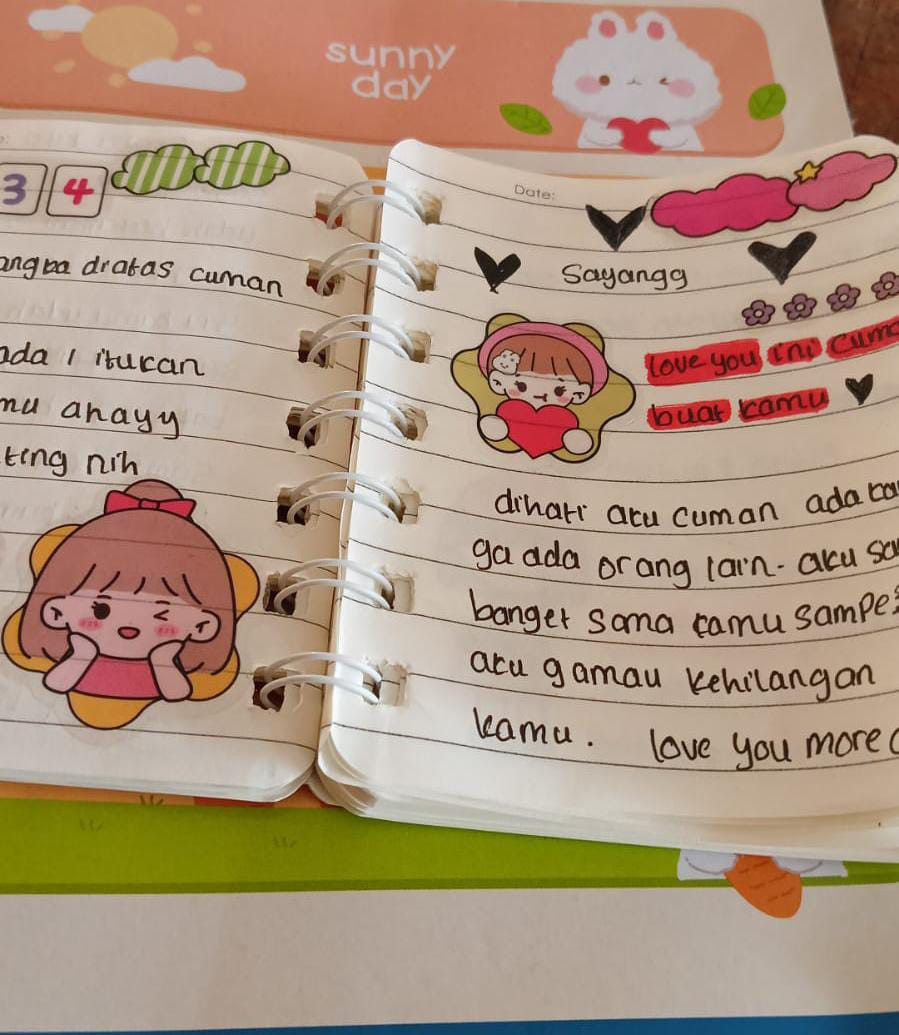 sunny
day
3 4
dratas cuman
ada 1 itukan
mu anayy
ting nih
Date:
Sayangg
love you ini cuma
buat kamu
dihati aku cuman ada ka
ga ada orang lain. aku sa
banget sama kamu sampe
aku gamau kehilangan
kamu. love you more